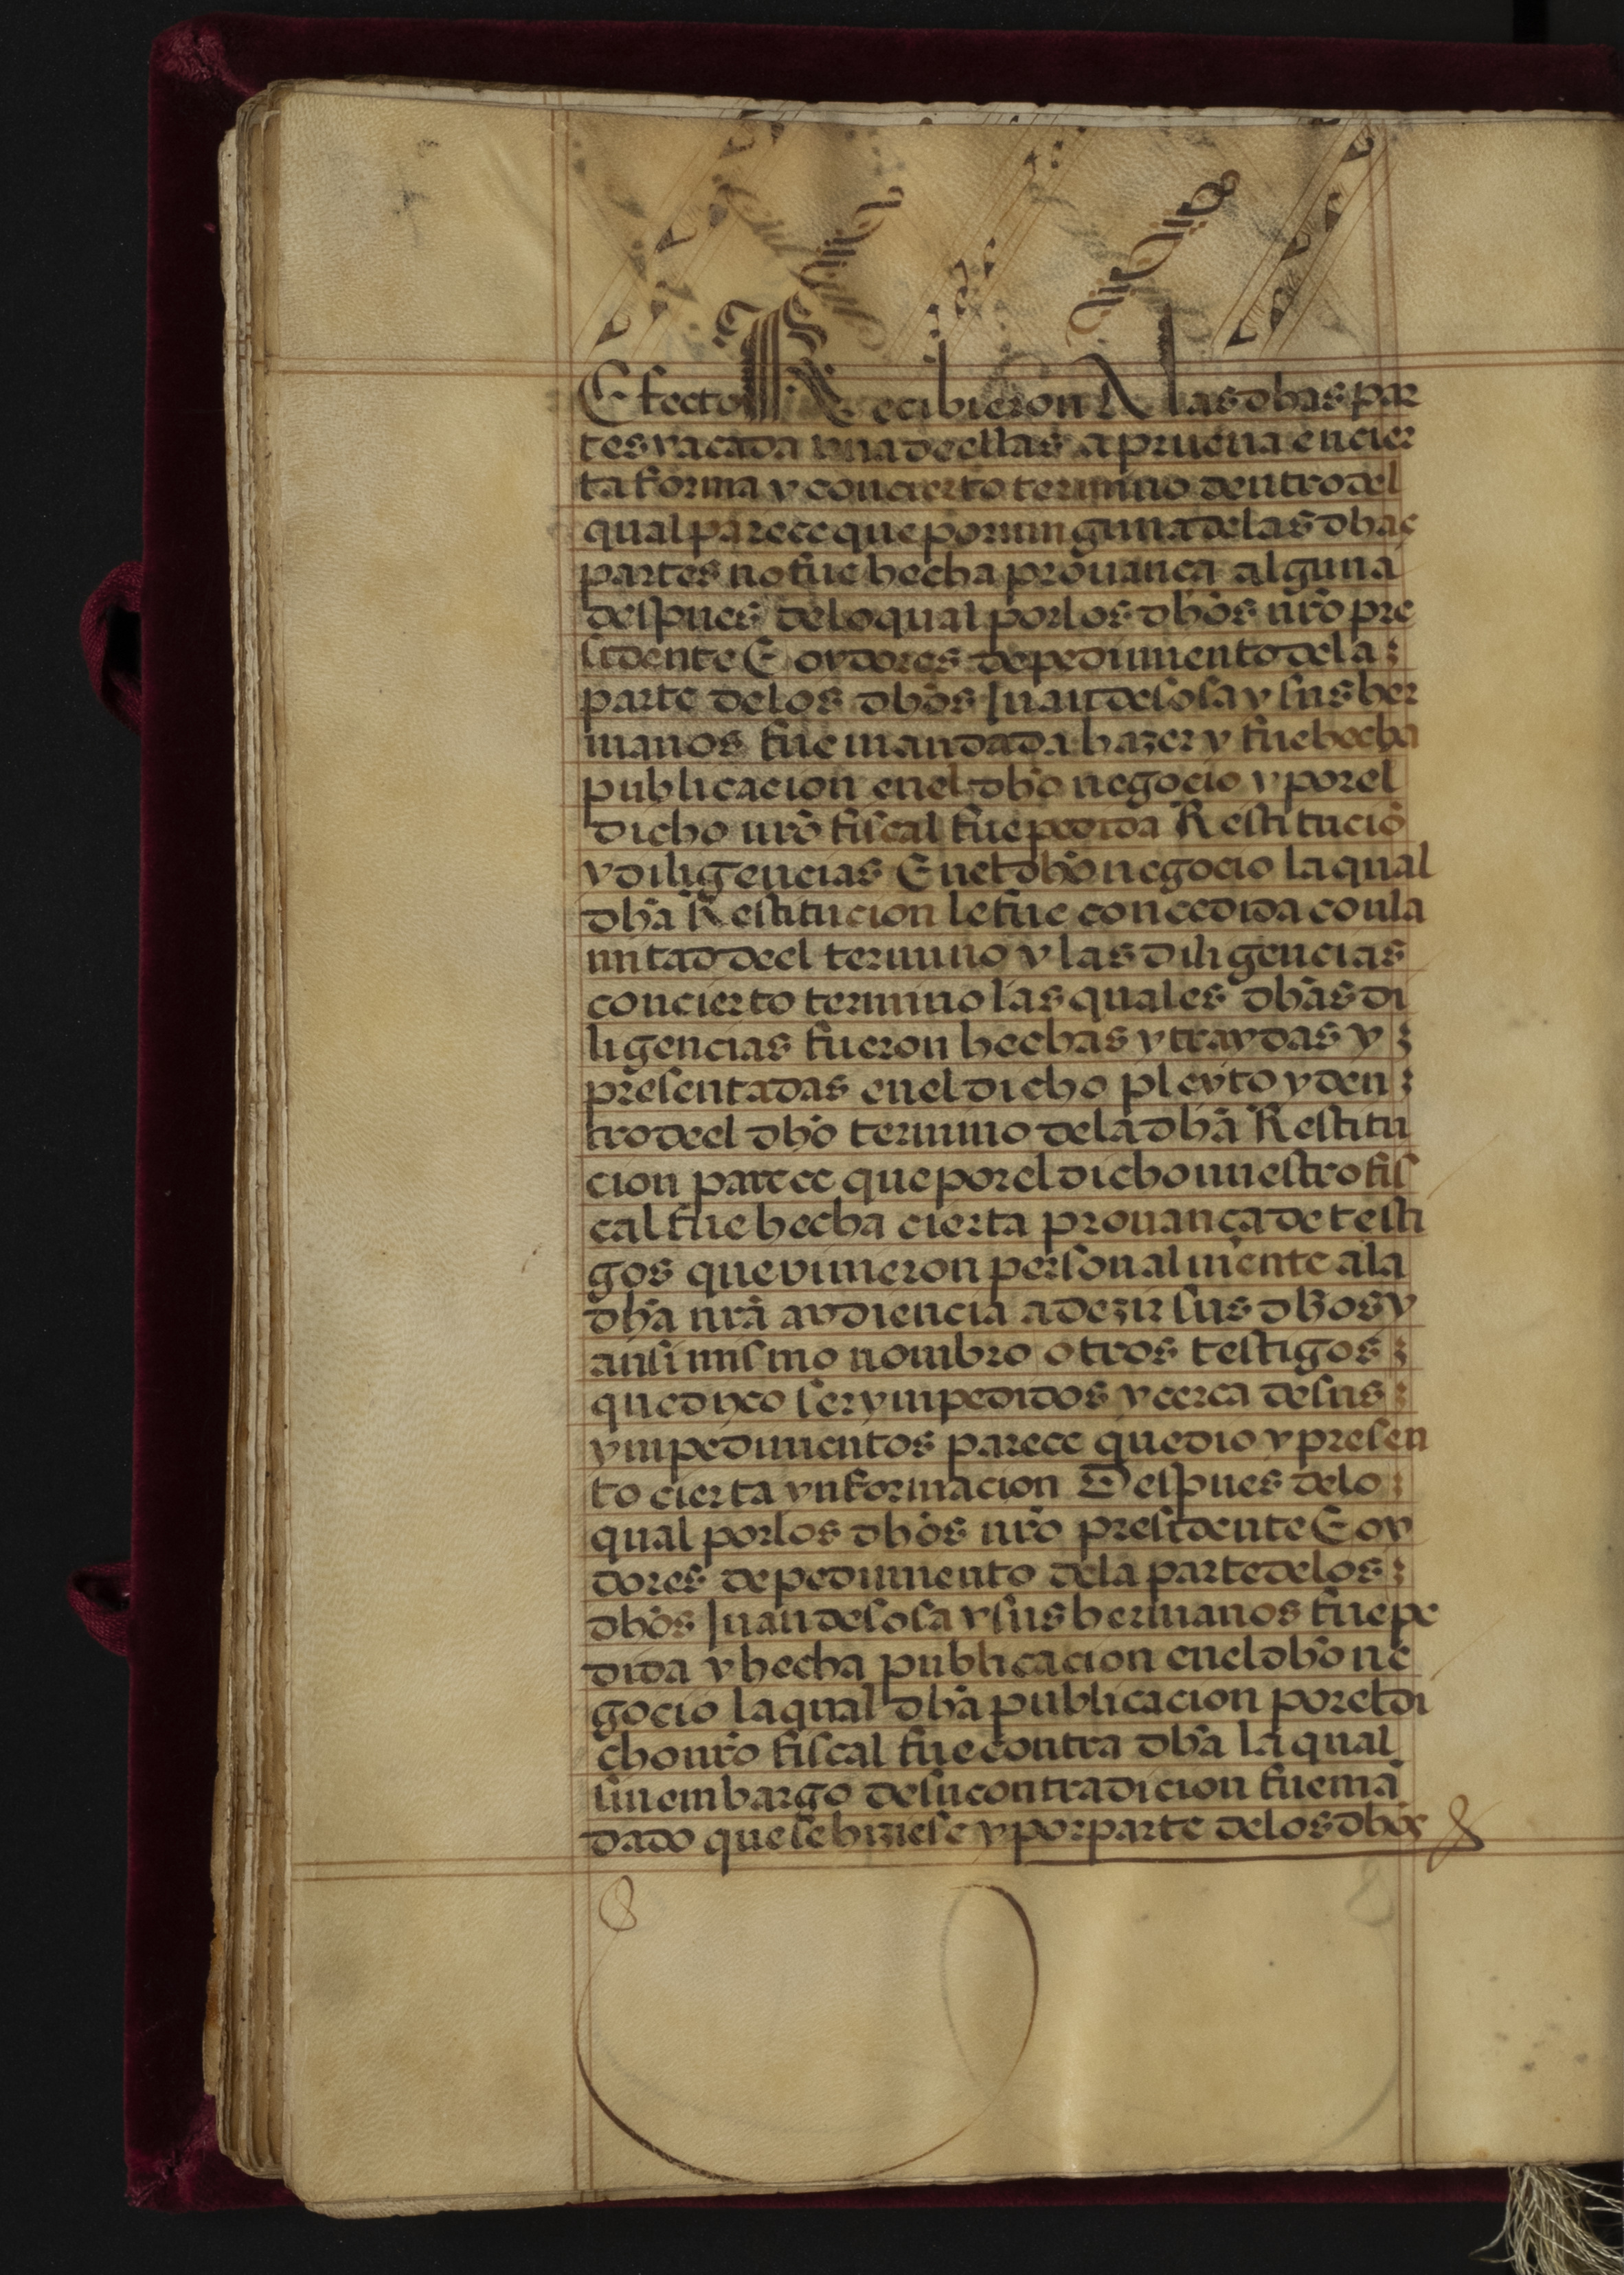 Efecto Recibieron A las dhas par
tes y a cada una de ellas a prueua en cier
ta forma y con cierto termino dentro del
qual parece que por ninguna de las dhas
partes no fue hecha prouança alguna
despues de lo qual por los dhõs nrõ pre
sidente E oydores de pedimiento de la :
parte de los dhõs Juan de sosa y sus her
manos fue mandada hazer y fue hecha
publicacion en el dhõ negocio y por el
dicho nrõ fiscal fue pedida Restituciõ
y diligencias En el dhõ negocio la qual
dhã Restitucion le fue concedida con la
mitad de el termino y las diligencias
con cierto termino las quales dhãs di
ligencias fueron hechas y traydas y :
presentadas en el dicho pleyto y den :
tro de el dhõ termino de la dhã Restitu
cion parece que por el dicho nuestro fis
cal fue hecha cierta prouança de testi
gos que vinieron personalmente a la
dhã nrã audiencia a dezir sus dhõs y
ansi mismo nombro otros testigos :
que dixo ser ympedidos y cerca de sus :
ympedimentos parece que dio y presen
to cierta ynformacion Despues de lo :
qual por los dhõs nrõ presidente E oy
dores de pedimiento de la parte de los :
dhõs Juan de sosa y sus hermanos fue pe
dida y hecha publicacion en el dhõ ne
gocio la qual dhã publicacion por el di
cho nrõ fiscal fue contra dhã la qual
sin embargo de su contradicion fue mã
dado que se hiziese y por parte de los dhõs